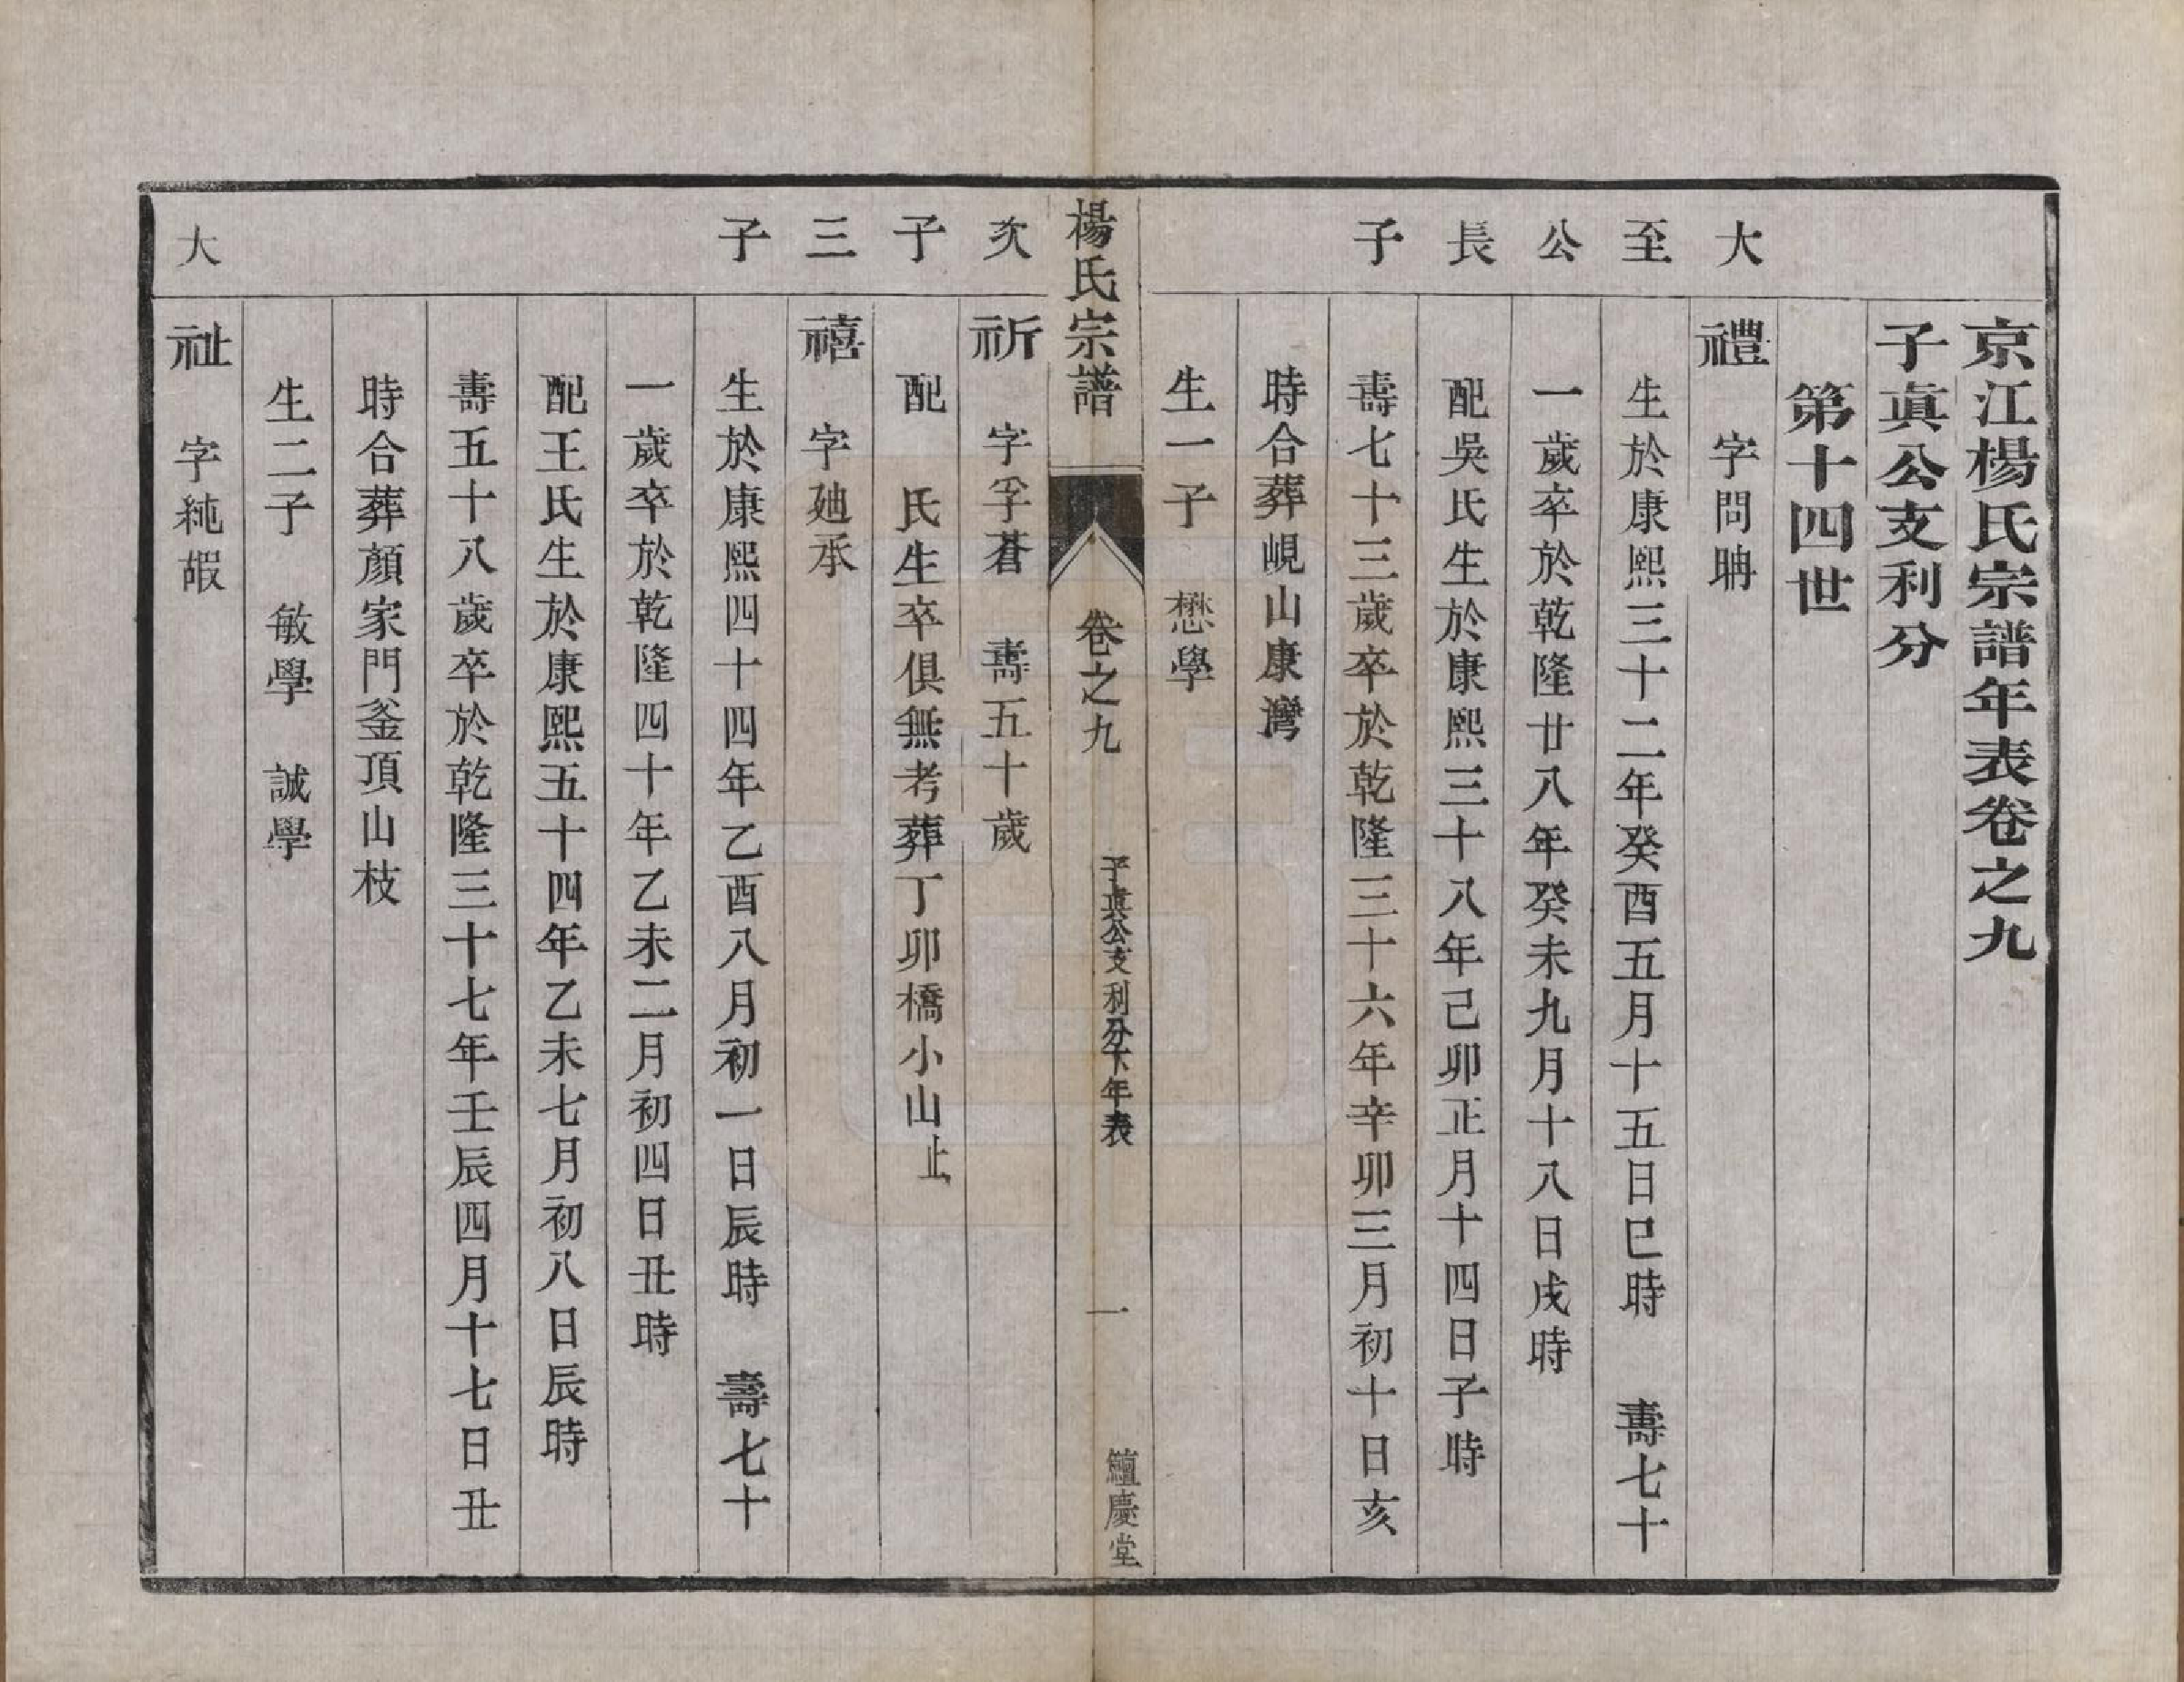 京江楊氏宗譜年表卷之九
子眞公支利分
第十四世
大至公長子
禮　字問聃
生於康熙三十二年癸酉五月十五日巳時　壽七十
一歲卒於乾隆廿八年癸未九月十八日戌時
配吳氏生於康熙三十八年己卯正月十四日子時
壽七十三歲卒於乾隆三十六年辛卯三月初十日亥
時合葬峴山康灣
生一子　懋學
楊氏宗譜
卷之九
子眞公支利分下年表
一
鱣慶堂
次子
祈　字孚蒼　壽五十歲
配　氏生卒俱無考葬丁卯橋小山止
三子
禧　字廸承
生於康熙四十四年乙酉八月初一日辰時　壽七十
一歲卒於乾隆四十年乙未二月初四日丑時
配王氏生於康熙五十四年乙未七月初八日辰時
壽五十八歲卒於乾隆三十七年壬辰四月十七日丑
時合葬顏家門釜頂山枝
生二子　敏學　誠學
大
祉　字純嘏